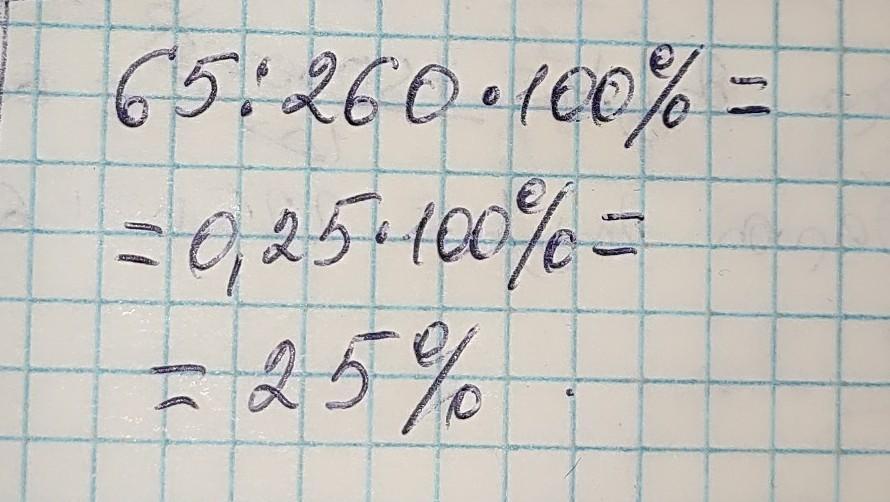 65:260·100%=
=0,25·100%=
=25%